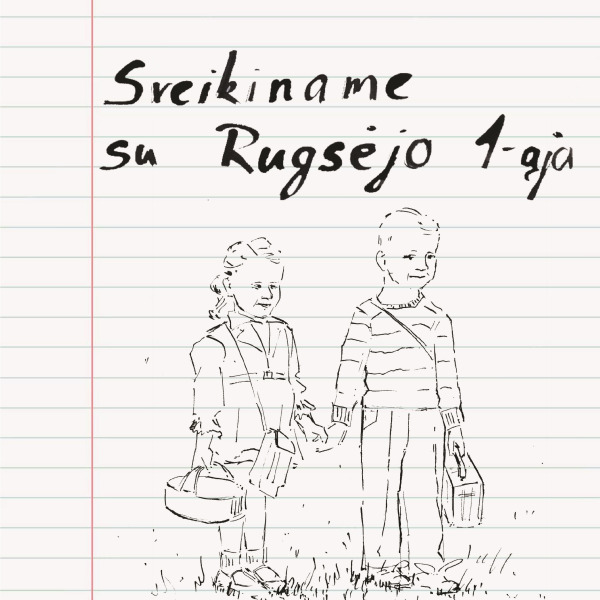 Sveikiname
su Rugsėjo 1-ąja